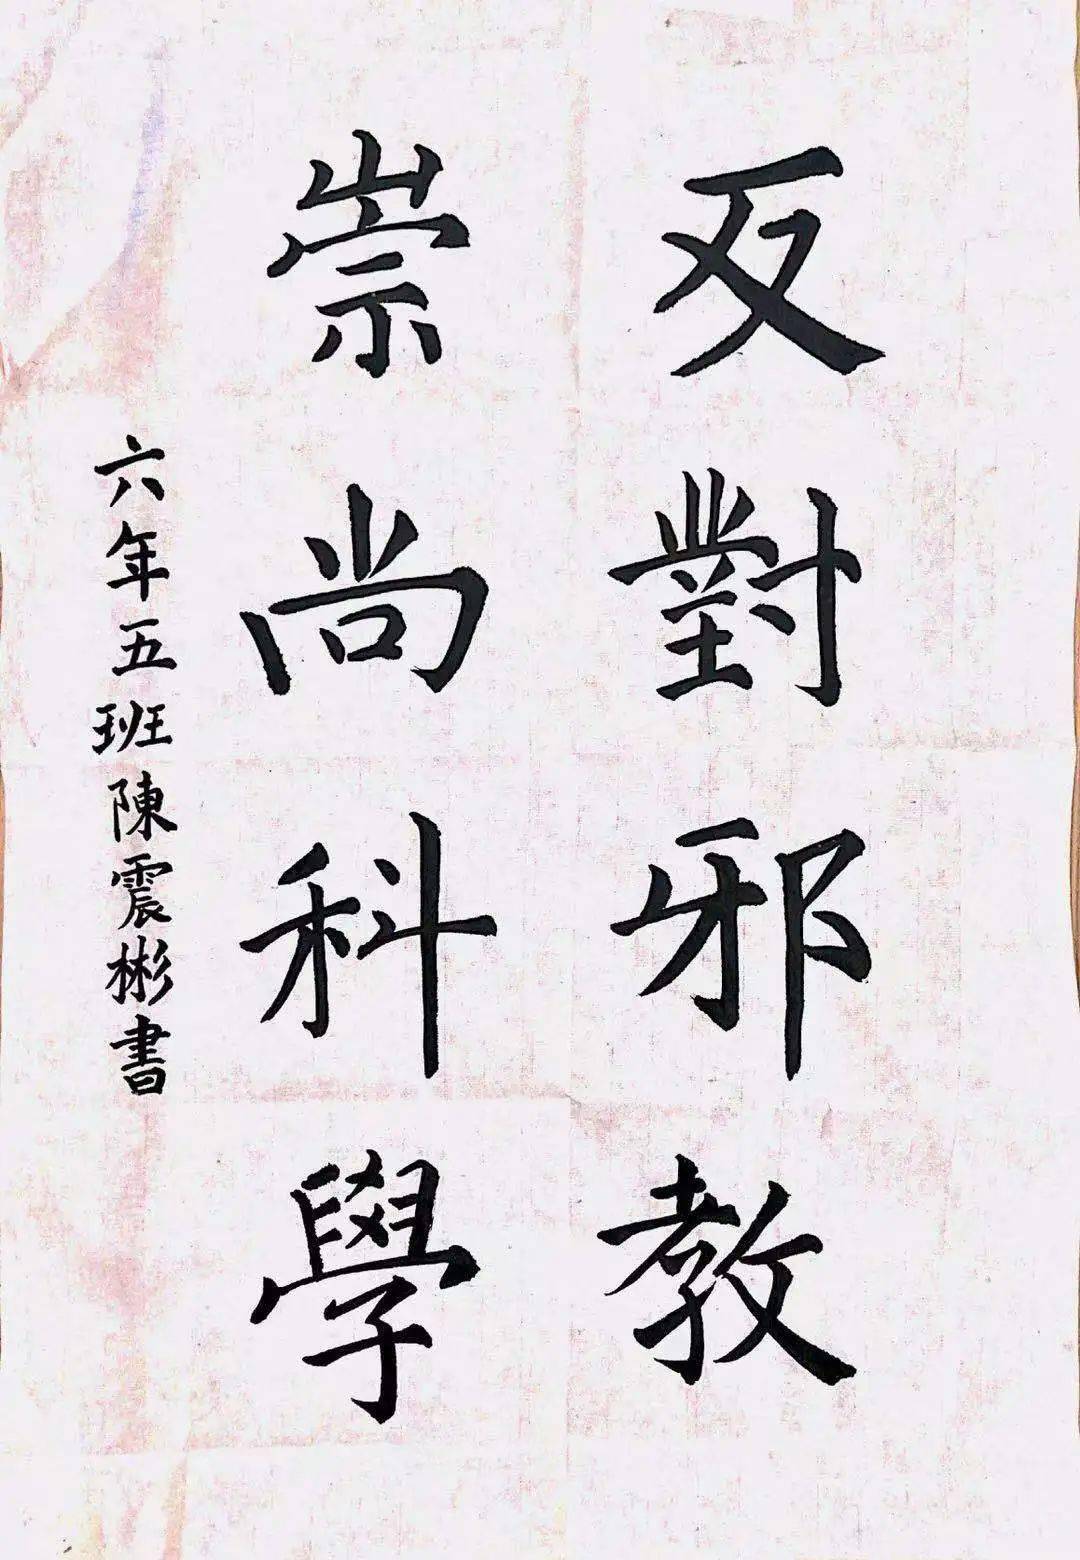 反對邪教
崇尚科學
六年五班陳震彬書